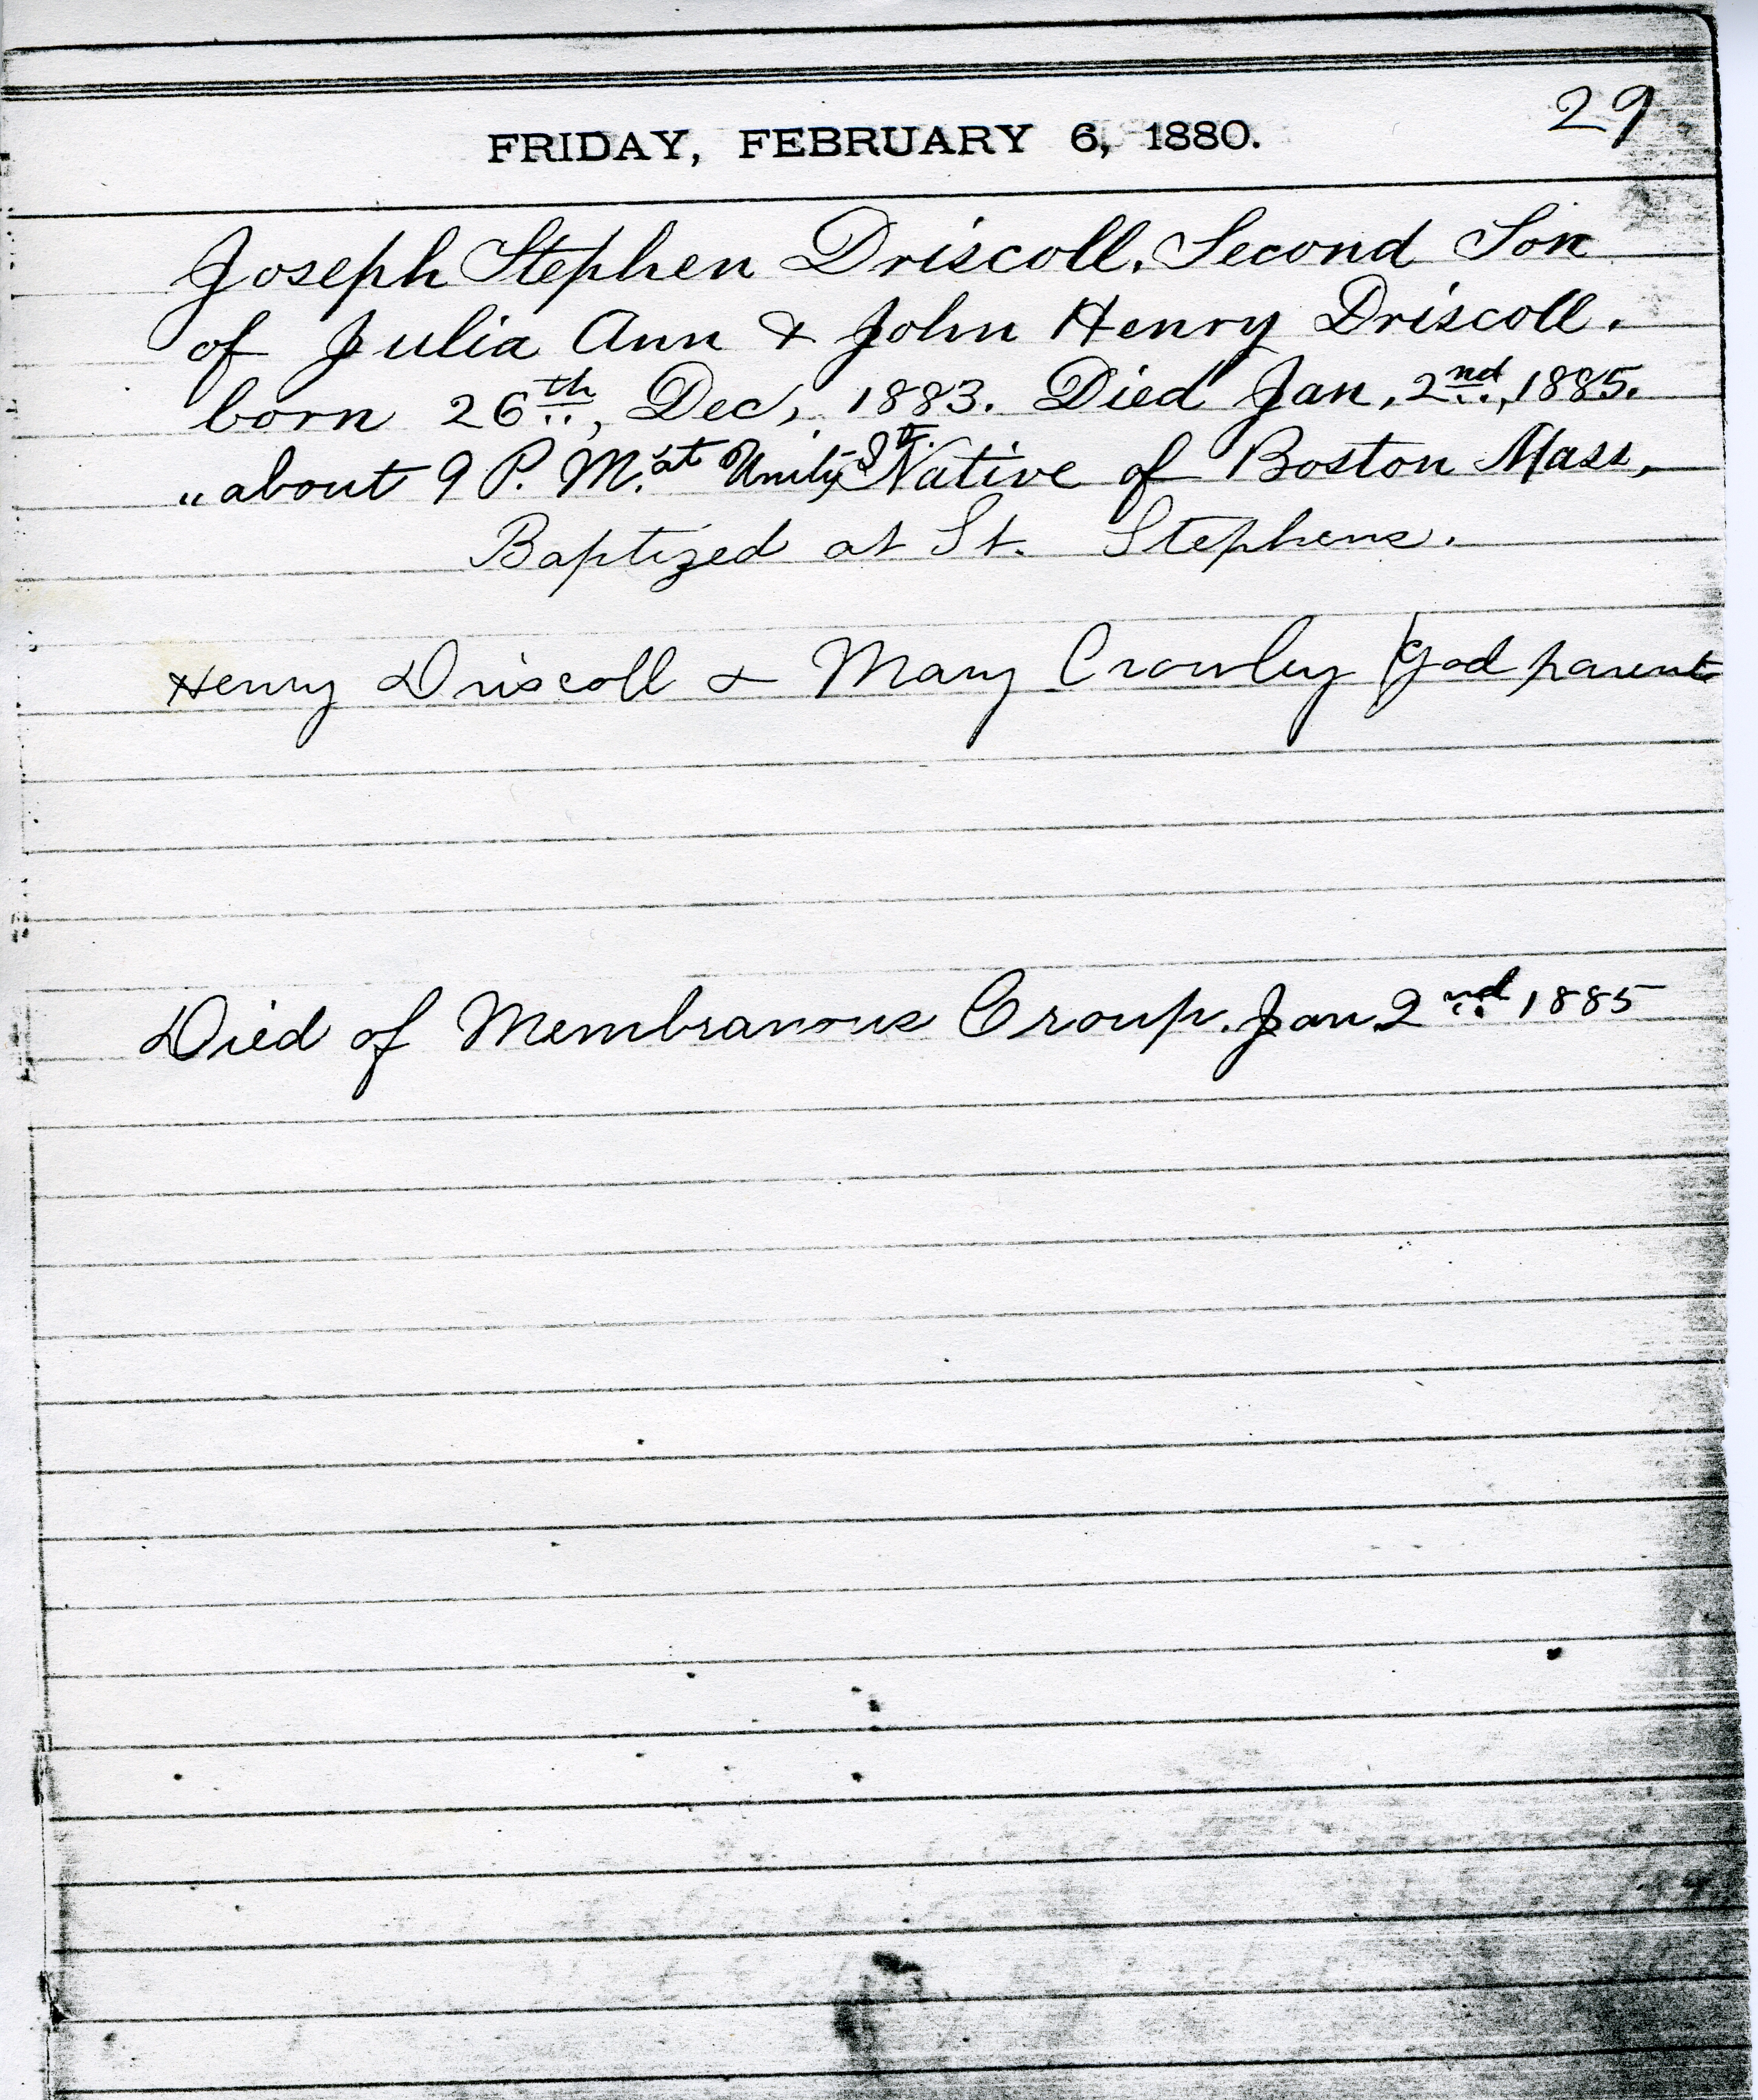 29
FRIDAY, FEBRUARY 6, 1880.
Joseph Stephen Driscoll. Second Son
of Julia Ann & John Henry Driscoll.
born 26th, Dec, 1883. Died Jan, 2nd, 1885.
" about 9 P. M. at Unity St. Native of Boston Mass,
Baptized at St. Stephens.
Henry Driscoll & Mary Crowley God parents
Died of Membranous Croup. Jan 2nd 1885